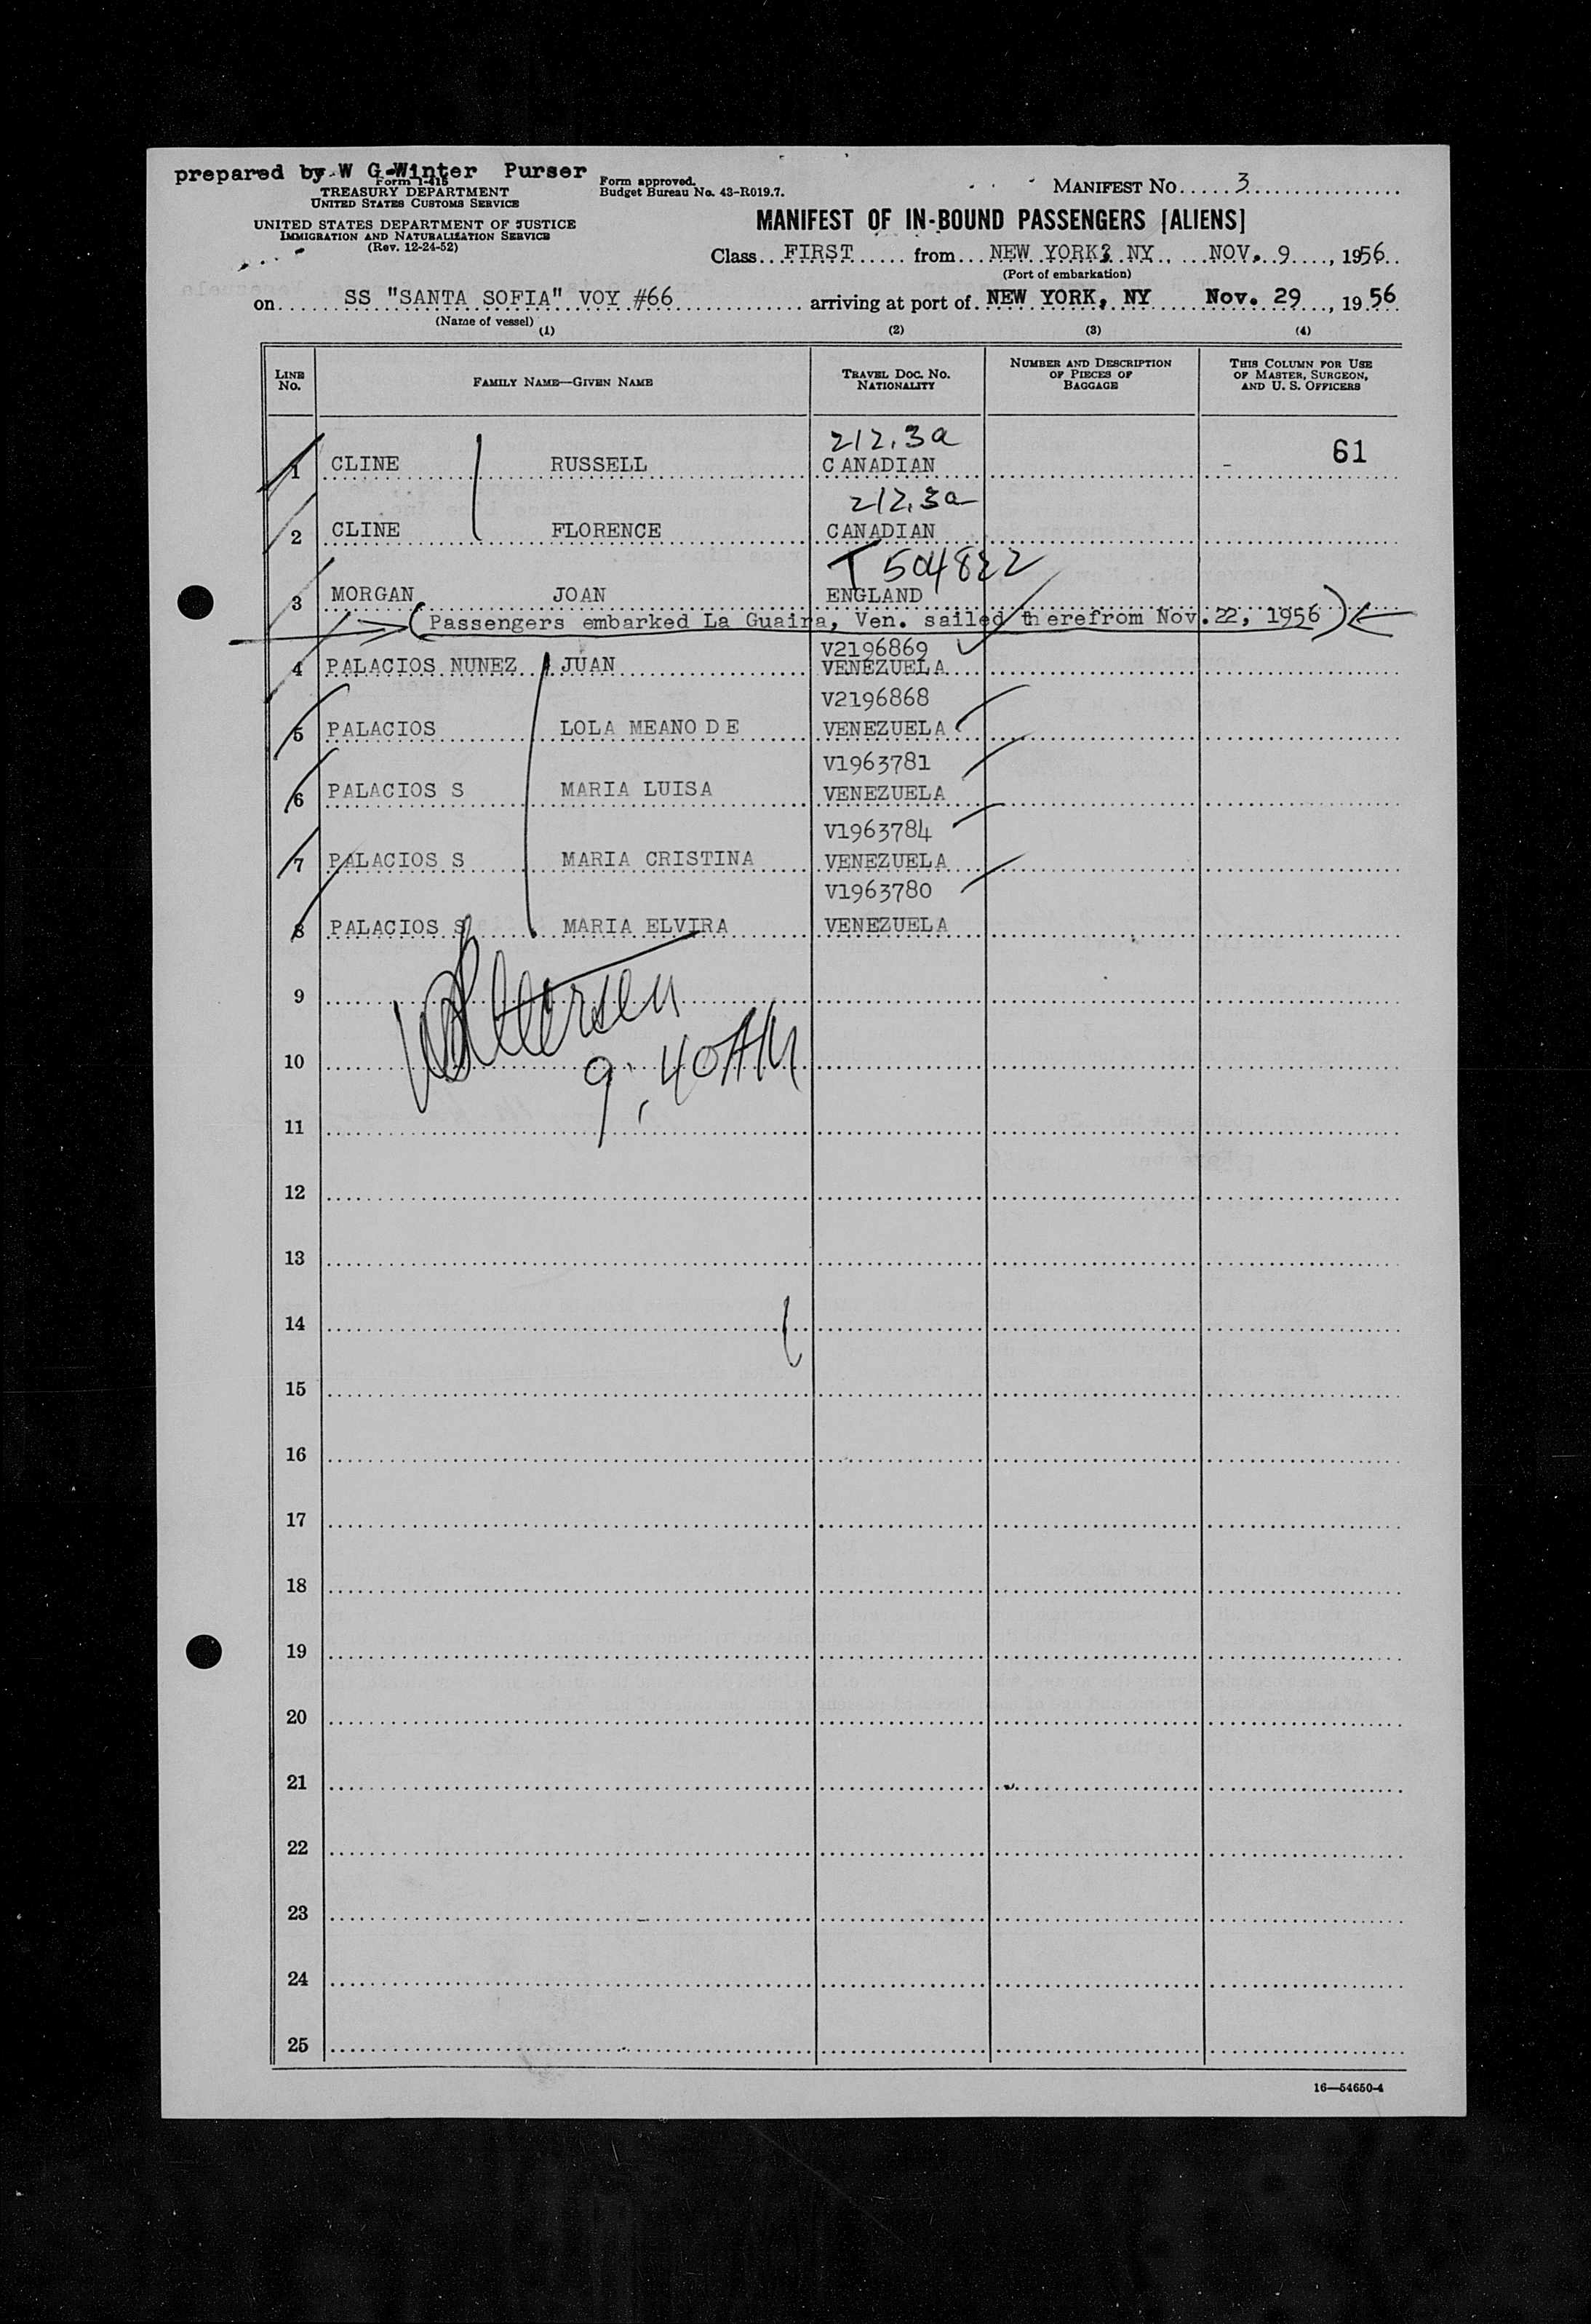 prepared by W G Winter Purser
Form I-415
TREASURY DEPARTMENT
UNITED STATES CUSTOMS SERVICE
UNITED STATES DEPARTMENT OF JUSTICE
IMMIGRATION AND NATURALIZATION SERVICE
(Rev. 12-24-52)
Form approved.
Budget Bureau No. 43-R019.7.
MANIFEST NO. 3
MANIFEST OF IN-BOUND PASSENGERS [ALIENS]
Class FIRST from NEW YORK, NY NOV. 9, 1956
(Port of embarkation)
on SS "SANTA SOFIA" VOY #66 arriving at port of NEW YORK, NY Nov. 29, 1956
(Name of vessel)
(1) (2) (3) (4)
LINE NO. FAMILY NAME—GIVEN NAME TRAVEL DOC. NO. NATIONALITY NUMBER AND DESCRIPTION OF PIECES OF BAGGAGE THIS COLUMN FOR USE OF MASTER, SURGEON, AND U. S. OFFICERS
212.3a
1 CLINE RUSSELL CANADIAN 61
212.3a
2 CLINE FLORENCE CANADIAN
T 504822
3 MORGAN JOAN ENGLAND
(Passengers embarked La Guaira, Ven. sailed therefrom Nov. 22, 1956)
V2196869
4 PALACIOS NUNEZ JUAN VENEZUELA
V2196868
5 PALACIOS LOLA MEANO DE VENEZUELA
V1963781
6 PALACIOS S MARIA LUISA VENEZUELA
V1963784
7 PALACIOS S MARIA CRISTINA VENEZUELA
V1963780
8 PALACIOS S MARIA ELVIRA VENEZUELA
9
10 9:40 AM
11
12
13
14
15
16
17
18
19
20
21
22
23
24
25
16—54650-4